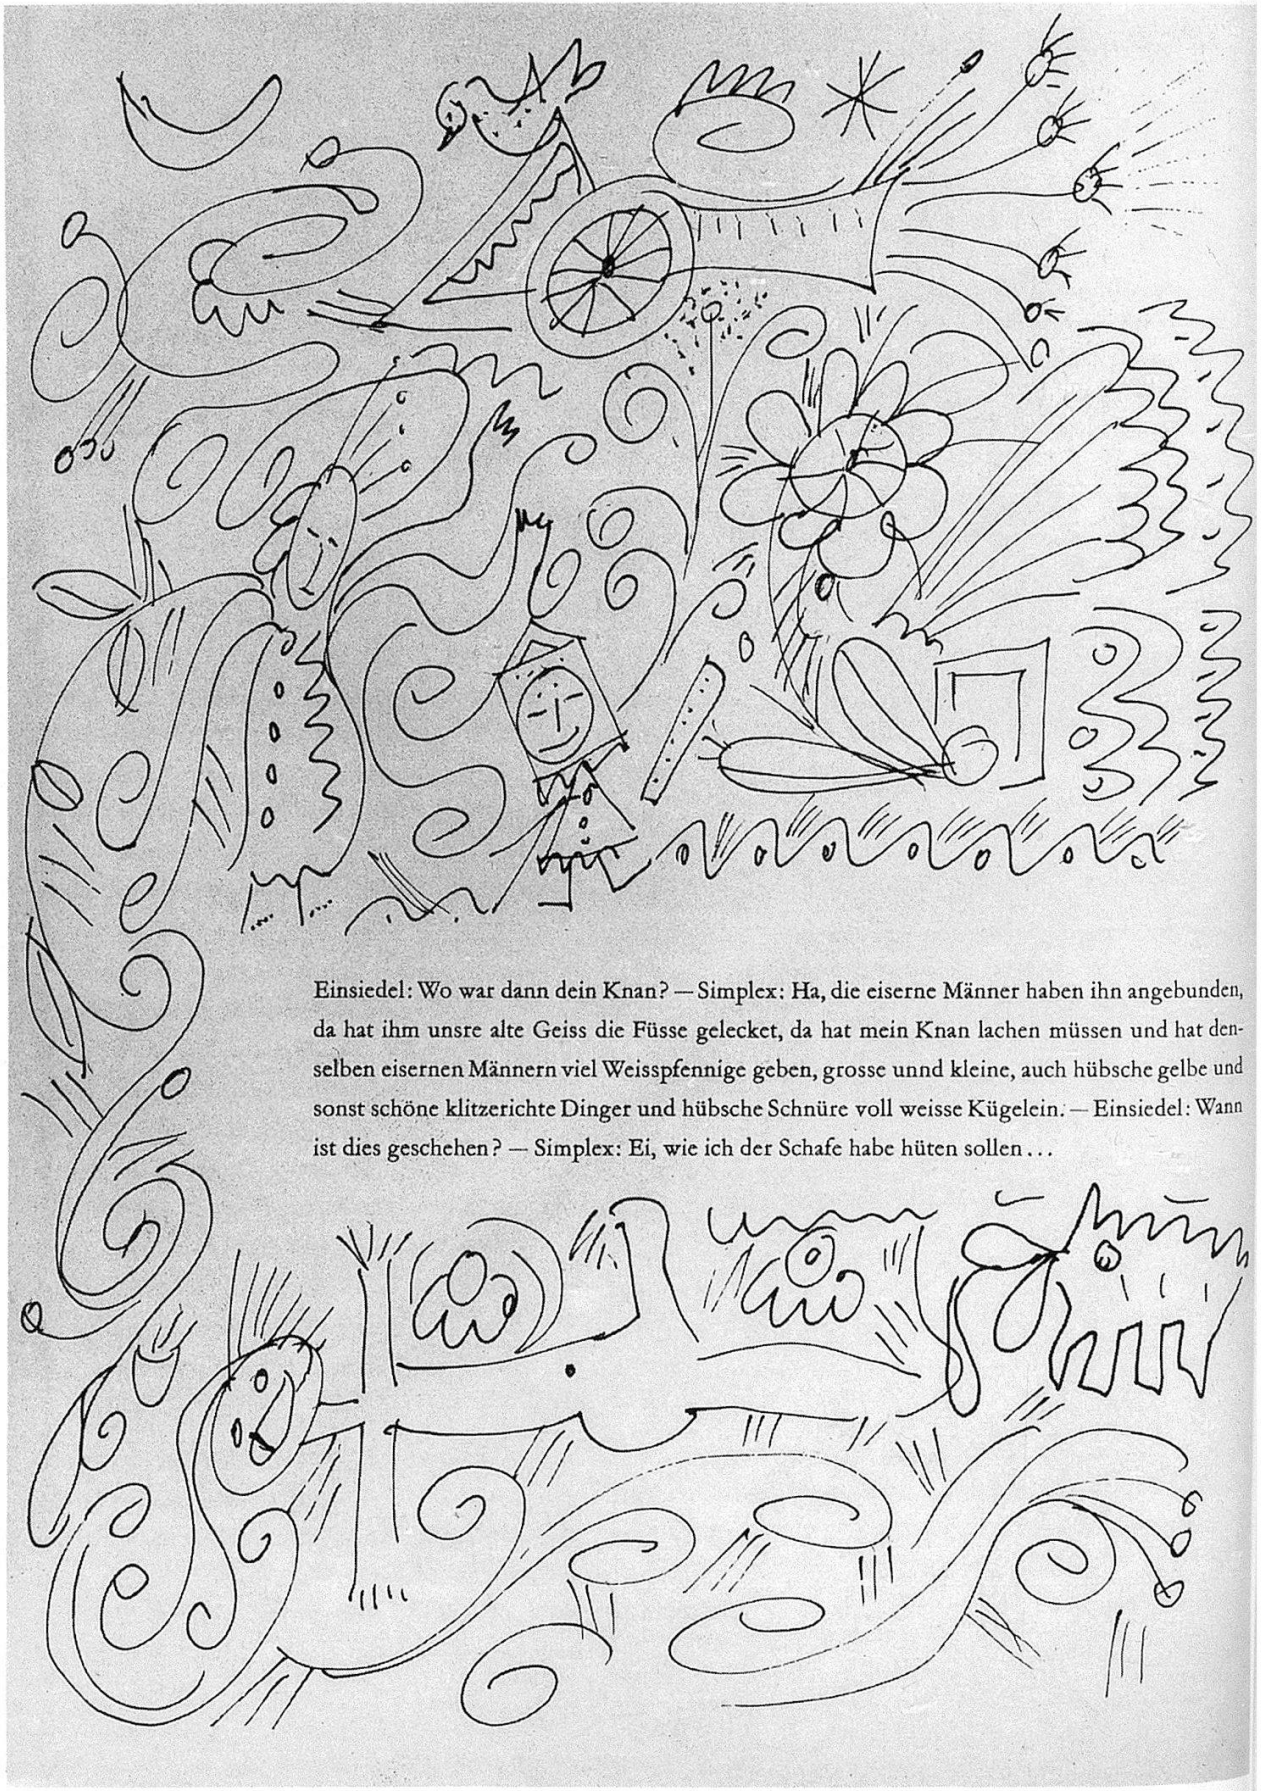 Einsiedel: Wo war dann dein Knan? — Simplex: Ha, die eiserne Männer haben ihn angebunden,
da hat ihm unsre alte Geiss die Füsse gelecket, da hat mein Knan lachen müssen und hat den-
selben eisernen Männern viel Weisspfennige geben, grosse unnd kleine, auch hübsche gelbe und
sonst schöne klitzerichte Dinger und hübsche Schnüre voll weisse Kügelein. — Einsiedel: Wann
ist dies geschehen? — Simplex: Ei, wie ich der Schafe habe hüten sollen...